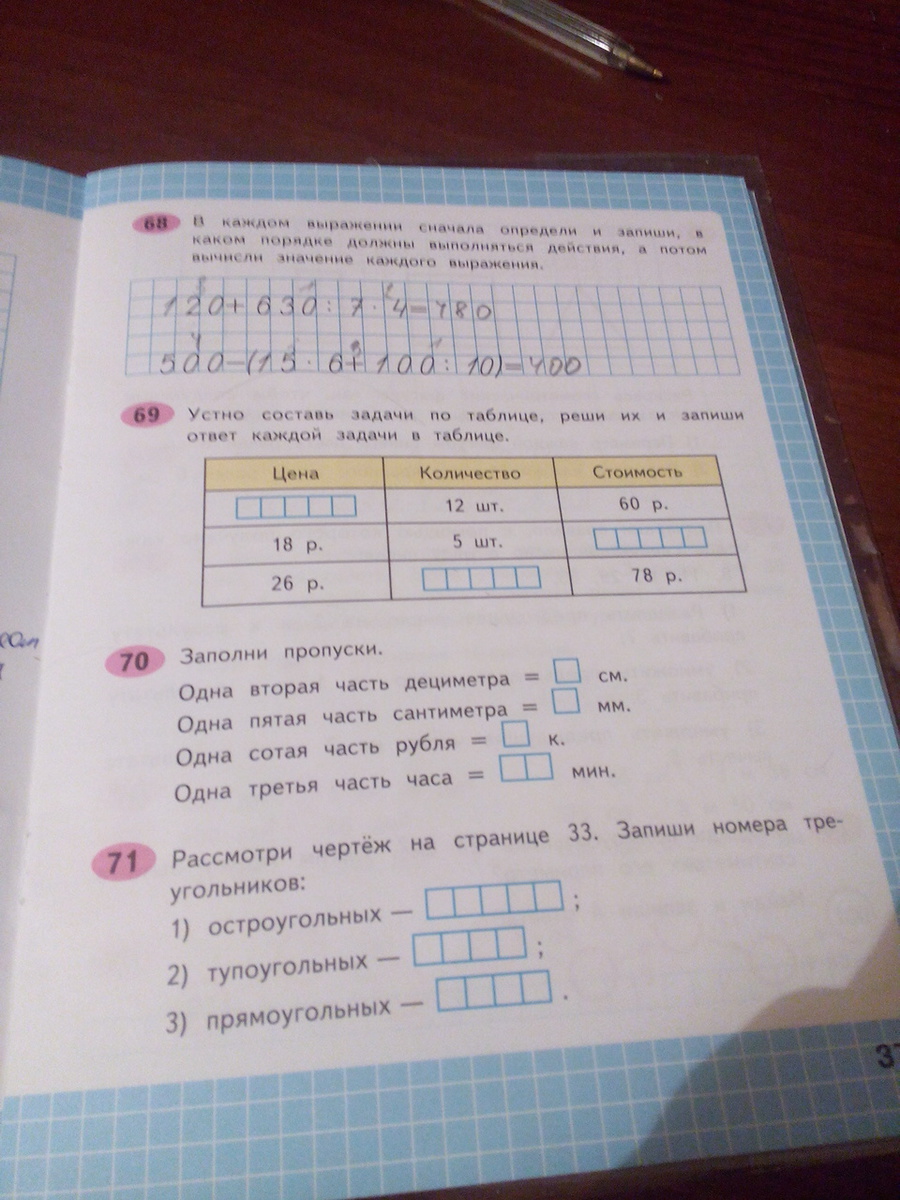 68 В каждом выражении сначала определи и запиши, в
каком порядке должны выполняться действия, а потом
вычисли значение каждого выражения.
3 1 2
120+630:7·4=480
4 3 1
500-(15·6+100:10)=400
69 Устно составь задачи по таблице, реши их и запиши
ответ каждой задачи в таблице.
Цена Количество Стоимость
12 шт. 60 р.
18 р. 5 шт.
26 р. 78 р.
70 Заполни пропуски.
Одна вторая часть дециметра = см.
Одна пятая часть сантиметра = мм.
Одна сотая часть рубля = к.
Одна третья часть часа = мин.
71 Рассмотри чертёж на странице 33. Запиши номера тре-
угольников:
1) остроугольных — ;
2) тупоугольных — ;
3) прямоугольных — .